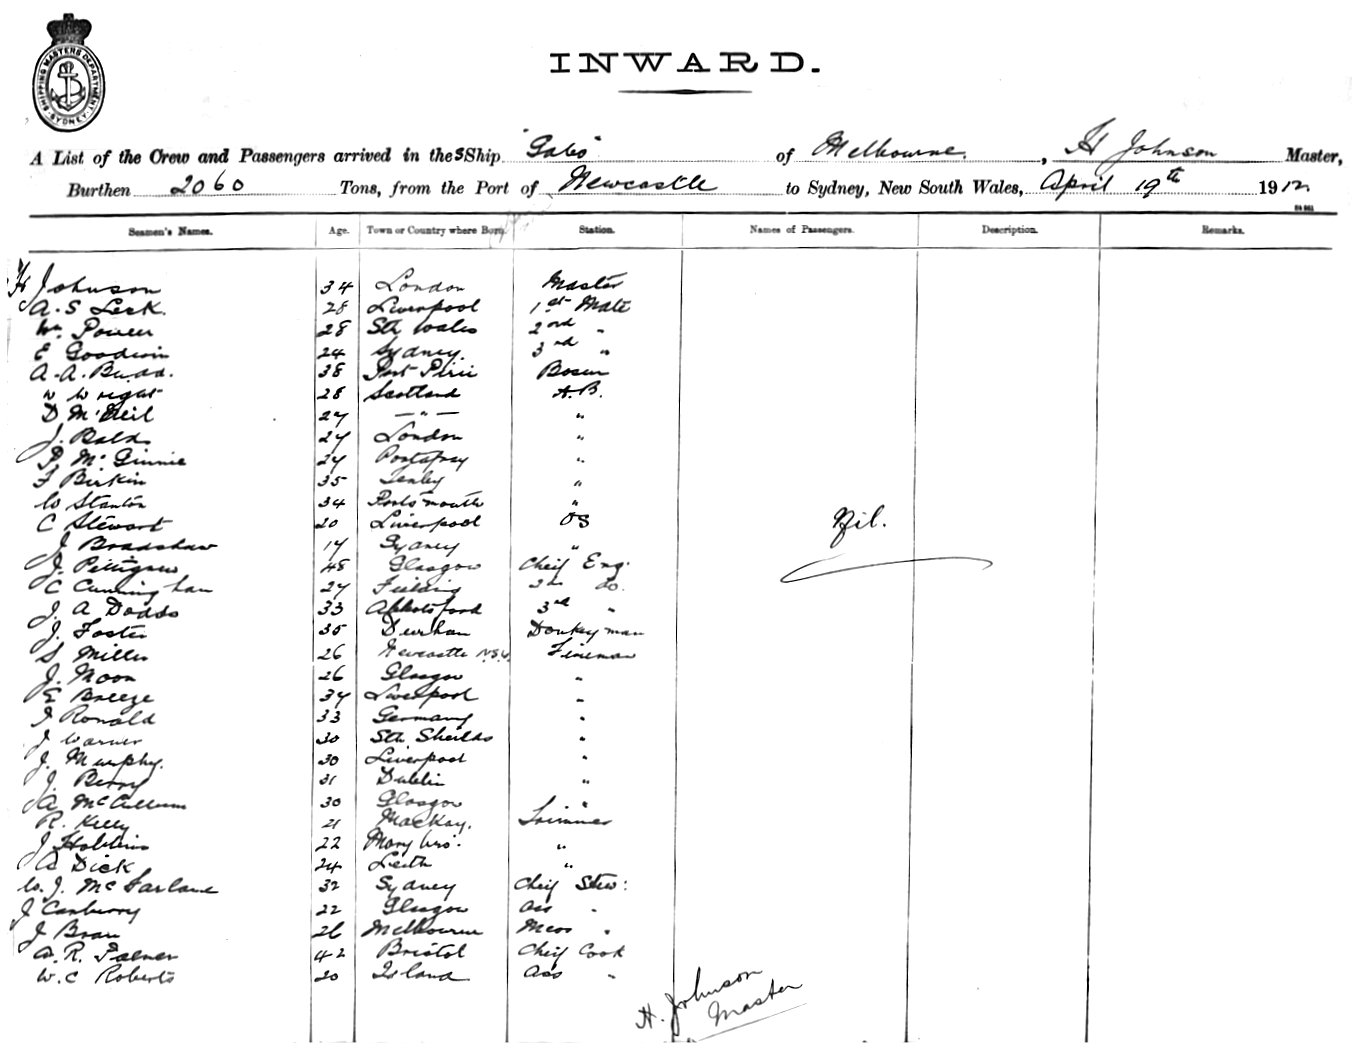 SHIPPING MASTERS DEPARTMENT
SYDNEY
INWARD.
A List of the Crew and Passengers arrived in the SShip "Gabo" of Melbourne, H Johnson Master,
Burthen 2060 Tons, from the Port of Newcastle to Sydney, New South Wales, April 19th 1912
Seamen's Names. Age. Town or Country where Born. Station. Names of Passengers. Description. Remarks.
H Johnson 34 London Master
A. S Leck. 28 Liverpool 1st Mate
Wm Power 28 Sth Wales 2nd "
E Goodwin 24 Sydney. 3rd "
A. A. Budd. 38 Port Pirie Bosun
W Wright 28 Scotland A.B.
D McNeil 27 — " — "
J. Balds 27 London "
P McGinnie 24 "
F Birkin 35 Tenby "
W Stanton 34 Portsmouth "
C Stewart 20 Liverpool OS
Nil.
J Bradshaw 17 Sydney "
J. Pettigrew 48 Glasgow Cheif Eng.
C Cunningham 27 2nd Do.
J. A Dodds 33 Abbotsford 3rd "
J. Foster 35 Durham Donkeyman
S Miller 26 Newcastle N.S.W. Fireman
J. Moon 26 Glasgow "
E Breeze 34 Liverpool "
J Ronald 33 Germany "
J Warner 30 Sth Sheilds "
J. Murphy. 30 Liverpool "
J. Berry 31 Dublin "
A McCullum 30 Glasgow "
R. Kelly 21 Mackay. Trimmer
J Hobbins 22 Mary bro'. "
A Dick 24 Leith "
W. J. McFarlane 32 Sydney Cheif Stew:
J Canberry 22 Glasgow Ass "
J Bran 26 Melbourne Mess "
A. R. Palmer 42 Bristol Cheif Cook
W. C Roberts 20 Island Ass "
H. Johnson
Master